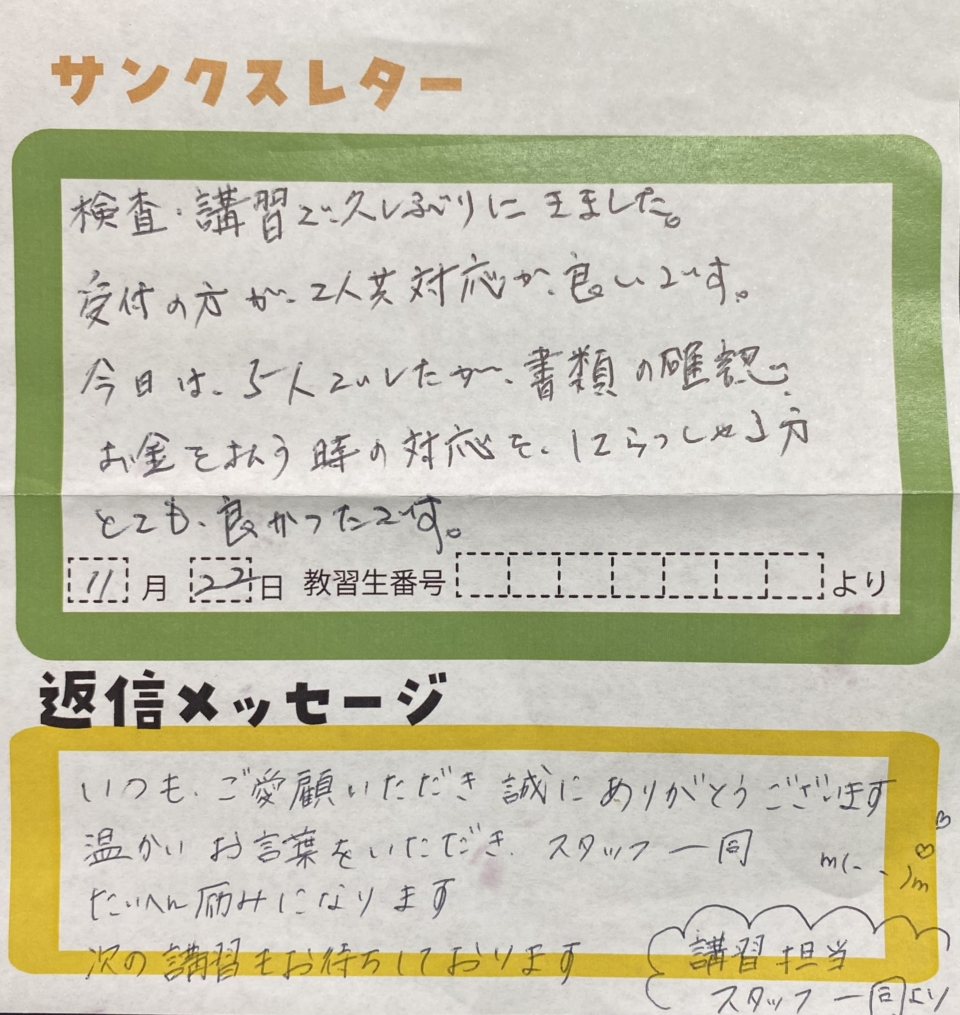 サンクスレター
検査・講習で久しぶりに来ました。
受付の方が、2人共対応が、良いです。
今日は、5人でしたが、書類の確認、
お金を払う時の対応を、にらっしゃる方
とても、良かったです。
11月 22日 教習生番号 より
返信メッセージ
いつも、ご愛顧いただき 誠にありがとうございます
温かい お言葉をいただき、スタッフ 一同 m(- -)m
たいへん励みになります
次の講習もお待ちしております
講習担当
スタッフ 一同より